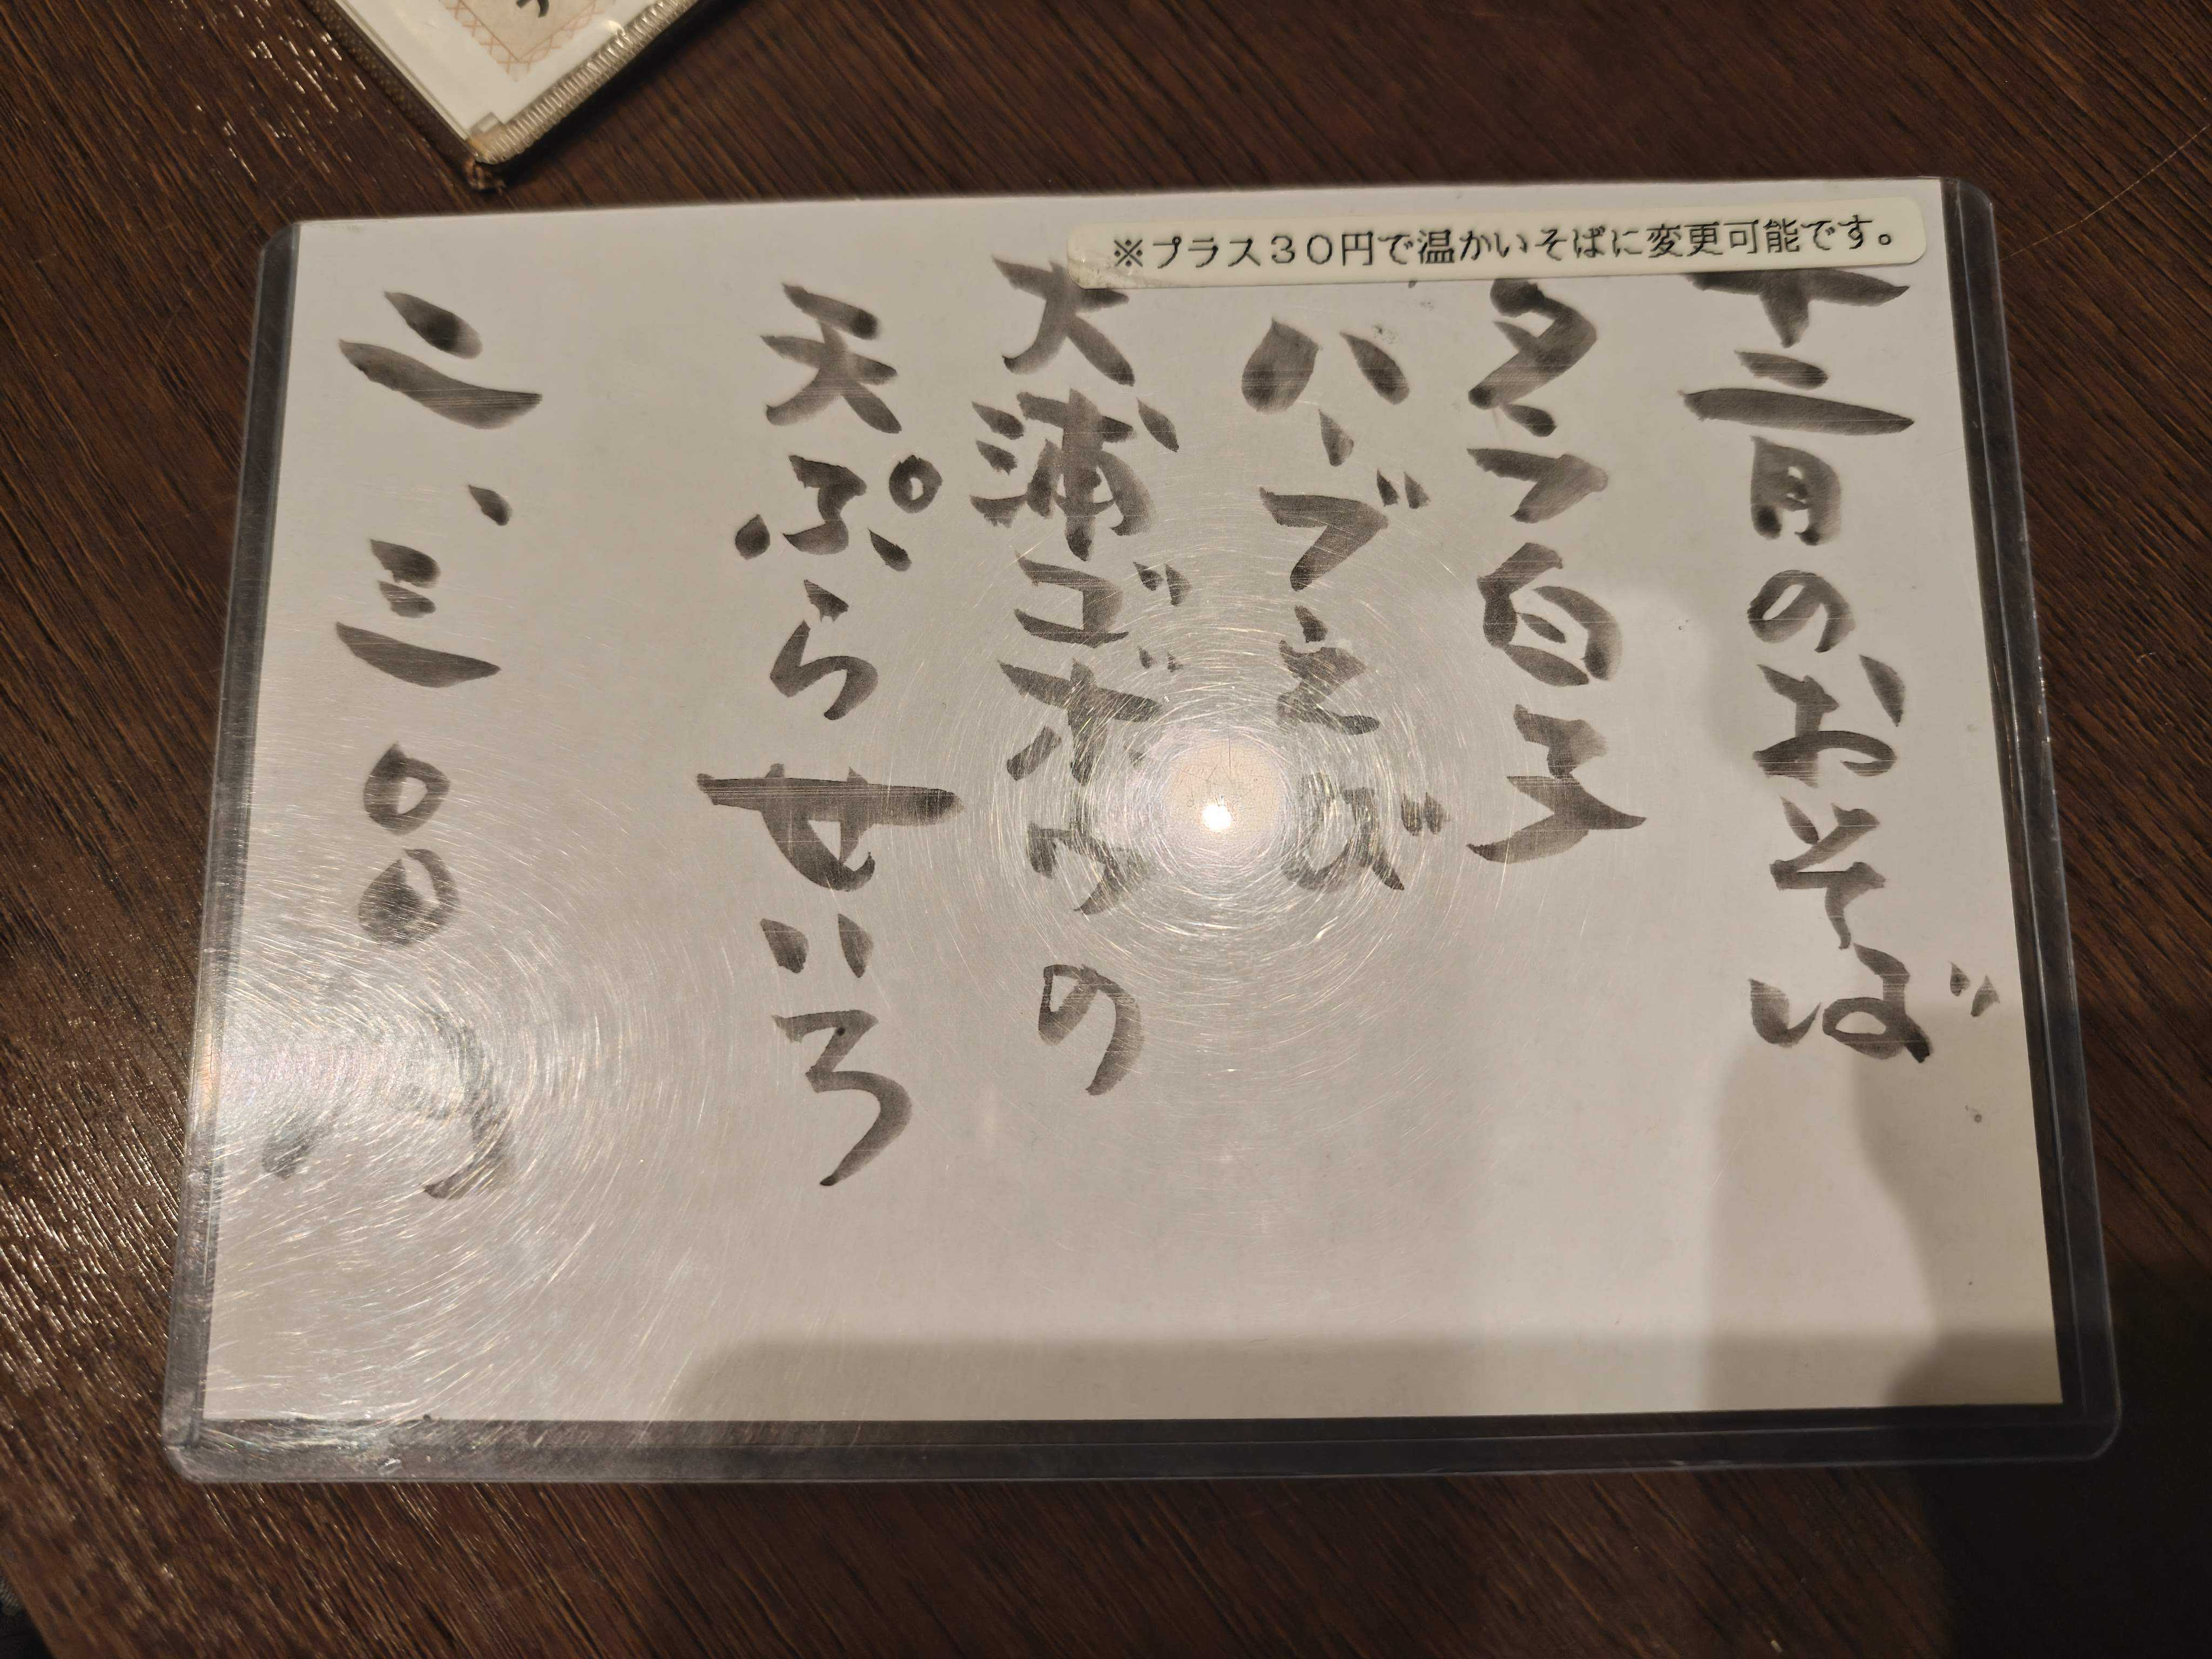 ※プラス30円で温かいそばに変更可能です。
十二月のおそば
タラ白子
ハーブえび
大浦ゴボウの
天ぷらせいろ
二、三〇〇